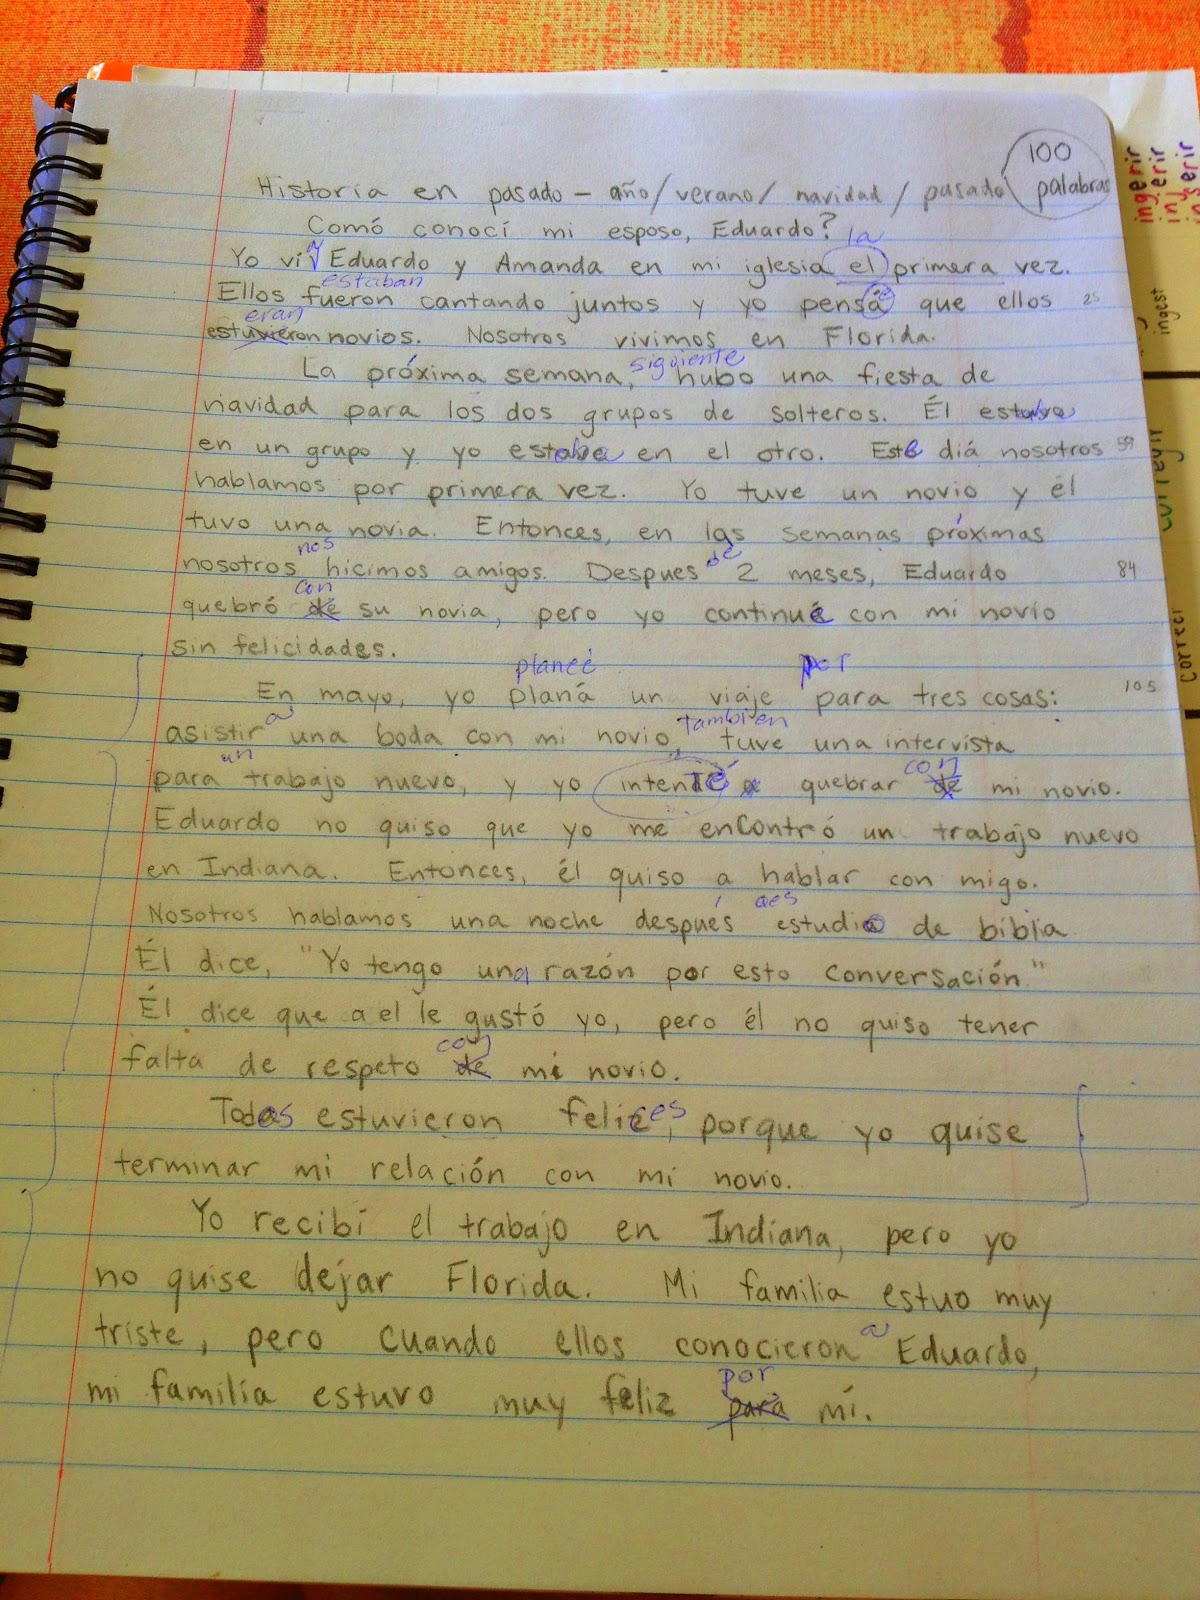 100
palabras
Historia en pasado - año/verano/navidad/pasado
Comó conocí mi esposo, Eduardo?
la
Yo ví a Eduardo y Amanda en mi iglesia el primera vez.
estaban
Ellos fueron cantando juntos y yo pensé que ellos 25
eran
estuvieron novios. Nosotros vivimos en Florida.
siguiente
La próxima semana, hubo una fiesta de
navidad para los dos grupos de solteros. Él estaba
en un grupo y yo estaba en el otro. Este diá nosotros 59
hablamos por primera vez. Yo tuve un novio y él
tuvo una novia. Entonces, en las semanas próximas
nos
nosotros hicimos amigos. Despues de 2 meses, Eduardo 84
con
quebró de su novia, pero yo continué con mi novio
sin felicidades.
planeé por
En mayo, yo planá un viaje para tres cosas: 105
a también
asistir una boda con mi novio, tuve una intervista
un
para trabajo nuevo, y yo intenté a quebrar de mi novio.
con
Eduardo no quiso que yo me encontró un trabajo nuevo
en Indiana. Entonces, él quiso a hablar con migo.
des
Nosotros hablamos una noche después estudio de biblia
Él dice, "Yo tengo una razón por esto conversación."
Él dice que a el le gustó yo, pero él no quiso tener
con
falta de respeto de mi novio.
Todos estuvieron felices, porque yo quise
terminar mi relación con mi novio.
Yo recibí el trabajo en Indiana, pero yo
no quise dejar Florida. Mi familia estuo muy
triste, pero cuando ellos conocieron a Eduardo,
por
mi familia estuvo muy feliz para mí.
ingerir
ingerir
ingerir
ingest
corregir
correct